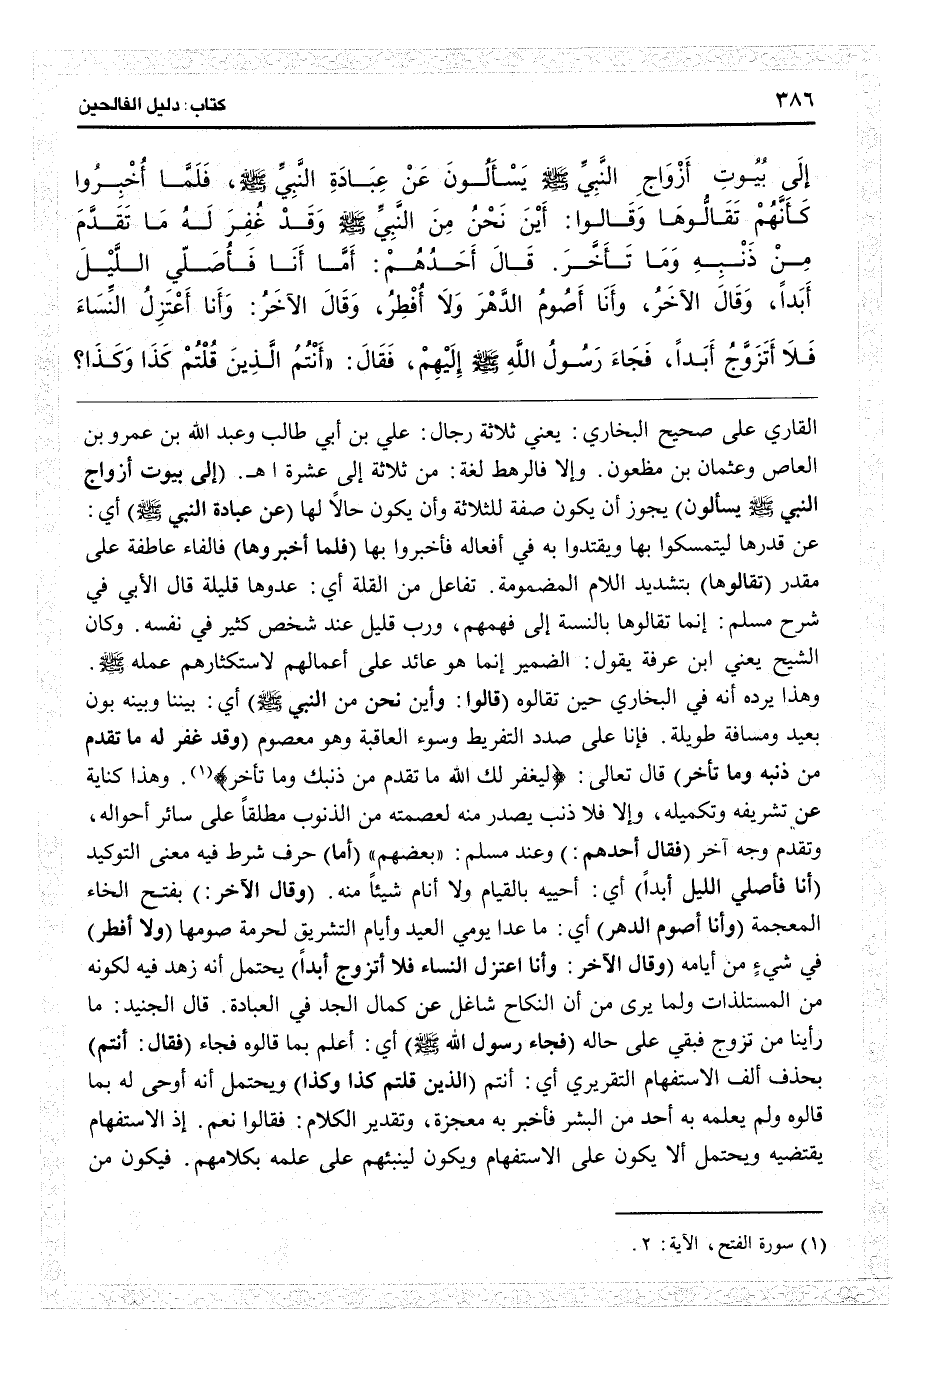 ٣٨٦
كتاب: دليل الفالحين
إِلَى بُيُوتِ أَزْوَاجِ النَّبِيِّ ﷺ يَسْأَلُونَ عَنْ عِبَادَةِ النَّبِيِّ ﷺ، فَلَمَّا أُخْبِرُوا
كَأَنَّهُمْ تَقَالُّوهَا وَقَالوا: أَيْنَ نَحْنُ مِنَ النَّبِيِّ ﷺ وَقَدْ غُفِرَ لَهُ مَا تَقَدَّمَ
مِنْ ذَنْبِهِ وَمَا تَأَخَّرَ. قَالَ أَحَدُهُمْ: أَمَّا أَنَا فَأُصَلِّي اللَّيْلَ
أَبَداً، وَقَالَ الآخَرُ، وأَنَا أَصُومُ الدَّهْرَ وَلَا أُفْطِرُ، وَقَالَ الآخَرُ: وَأَنا أَعْتَزِلُ النِّسَاءَ
فَلَا أَتَزَوَّجُ أَبَداً، فَجَاءَ رَسُولُ اللَّهِ ﷺ إِلَيْهِمْ، فَقَالَ: «أَنْتُمُ الَّذِينَ قُلْتُمْ كَذَا وَكَذَا؟
القاري على صحيح البخاري: يعني ثلاثة رجال: علي بن أبي طالب وعبد الله بن عمرو بن
العاص وعثمان بن مظعون. وإلا فالرهط لغة: من ثلاثة إلى عشرة ا هـ. (إلى بيوت أزواج
النبي ﷺ يسألون) يجوز أن يكون صفة للثلاثة وأن يكون حالاً لها (عن عبادة النبي ﷺ) أي:
عن قدرها ليتمسكوا بها ويقتدوا به في أفعاله فأخبروا بها (فلما أخبروها) فالفاء عاطفة على
مقدر (تقالوها) بتشديد اللام المضمومة. تفاعل من القلة أي: عدوها قليلة قال الأبي في
شرح مسلم: إنما تقالوها بالنسة إلى فهمهم، ورب قليل عند شخص كثير في نفسه. وكان
الشيخ يعني ابن عرفة يقول: الضمير إنما هو عائد على أعمالهم لاستكثارهم عمله ﷺ.
وهذا يرده أنه في البخاري حين تقالوه (قالوا: وأين نحن من النبي ﷺ) أي: بيننا وبينه بون
بعيد ومسافة طويلة. فإنا على صدد التفريط وسوء العاقبة وهو معصوم (وقد غفر له ما تقدم
من ذنبه وما تأخر) قال تعالى: ﴿ليغفر لك الله ما تقدم من ذنبك وما تأخر﴾(١). وهذا كناية
عن تشريفه وتكميله، وإلا فلا ذنب يصدر منه لعصمته من الذنوب مطلقاً على سائر أحواله،
وتقدم وجه آخر (فقال أحدهم:) وعند مسلم: «بعضهم» (أما) حرف شرط فيه معنى التوكيد
(أنا فأصلي الليل أبداً) أي: أحييه بالقيام ولا أنام شيئاً منه. (وقال الآخر:) بفتح الخاء
المعجمة (وأنا أصوم الدهر) أي: ما عدا يومي العيد وأيام التشريق لحرمة صومها (ولا أفطر)
في شيءٍ من أيامه (وقال الآخر: وأنا اعتزل النساء فلا أتزوج أبداً) يحتمل أنه زهد فيه لكونه
من المستلذات ولما يرى من أن النكاح شاغل عن كمال الجد في العبادة. قال الجنيد: ما
رأينا من تزوج فبقي على حاله (فجاء رسول الله ﷺ) أي: أعلم بما قالوه فجاء (فقال: أنتم)
بحذف ألف الاستفهام التقريري أي: أنتم (الذين قلتم كذا وكذا) ويحتمل أنه أوحى له بما
قالوه ولم يعلمه به أحد من البشر فأخبر به معجزة، وتقدير الكلام: فقالوا نعم. إذ الاستفهام
يقتضيه ويحتمل ألا يكون على الاستفهام ويكون لينبئهم على علمه بكلامهم. فيكون من
(١) سورة الفتح، الآية: ٢.